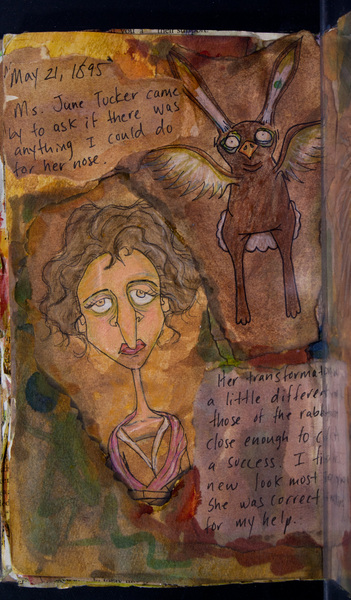 "May 21, 1895"
Ms. June Tucker came
by to ask if there was
anything I could do
for her nose.
Her transformation
a little different
those of the rabb
close enough to c
a success. I
new look most
She was correct
for my help.